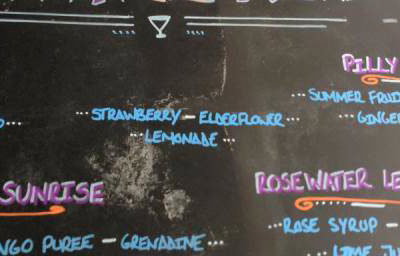 STRAWBERRY - ELDERFLOWER
LEMONADE
SUMMER
GINGER
SUNRISE
PUREE - GRENADINE
ROSEWATER
ROSE SYRUP -
LIME